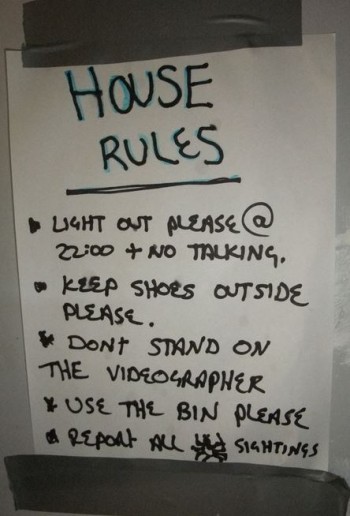 HOUSE
RULES
LIGHT OUT PLEASE @
22:00 + NO TALKING.
KEEP SHOES OUTSIDE
PLEASE.
DONT STAND ON
THE VIDEOGRAPHER
USE THE BIN PLEASE
REPORT ALL SIGHTINGS